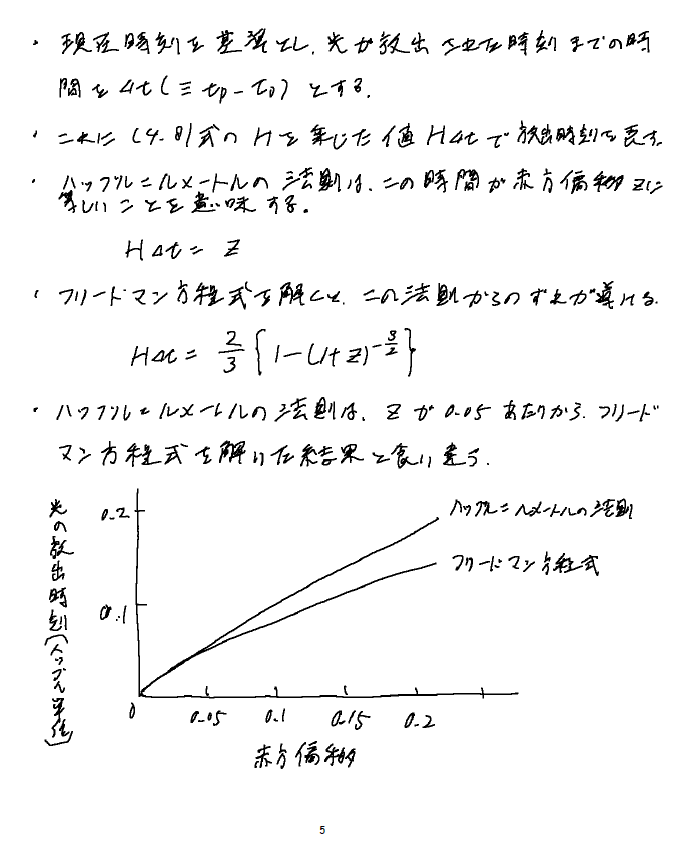 ・現在時刻を基準とし、光が放出された時刻までの時
間をΔt(≡t₀-t₀)とする。
・これに(4.8)式のHを乗じた値HΔtで放出時刻を表す。
・ハッブル=ルメートルの法則は、この時間が赤方偏移zに
等しいことを意味する。
HΔt = z
・フリードマン方程式を解くと、この法則からのずれが導ける。
HΔt = 2/3 {1-(1+z)^{-3/2}}
・ハッブル=ルメートルの法則は、zが0.05あたりから、フリード
マン方程式を解いた結果と食い違う。
光の放出時刻(ハッブル単位)
0.2
0.1
0
0.05
0.1
0.15
0.2
ハッブル=ルメートルの法則
フリードマン方程式
赤方偏移
5